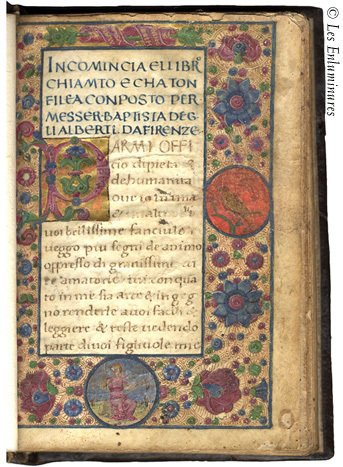 INCOMINCIA EL LIBR
CHIAMTO ECHATON
FILEA CONPOSTO PER
MESSER·BAPTISTA DEG
LI ALBERTI DA FIRENZE·
PARMI OFFI
cio di pieta &
de humanita
voi bellissime fanciule i
veggo piu segni de animo
oppresso di gravissime cu
re amatorie ivi conqua
to in me sia arte & ingeg
no renderle a voi facili &
leggiere & teste vedendo
parte di voi figliuole mie
© Les Enluminures